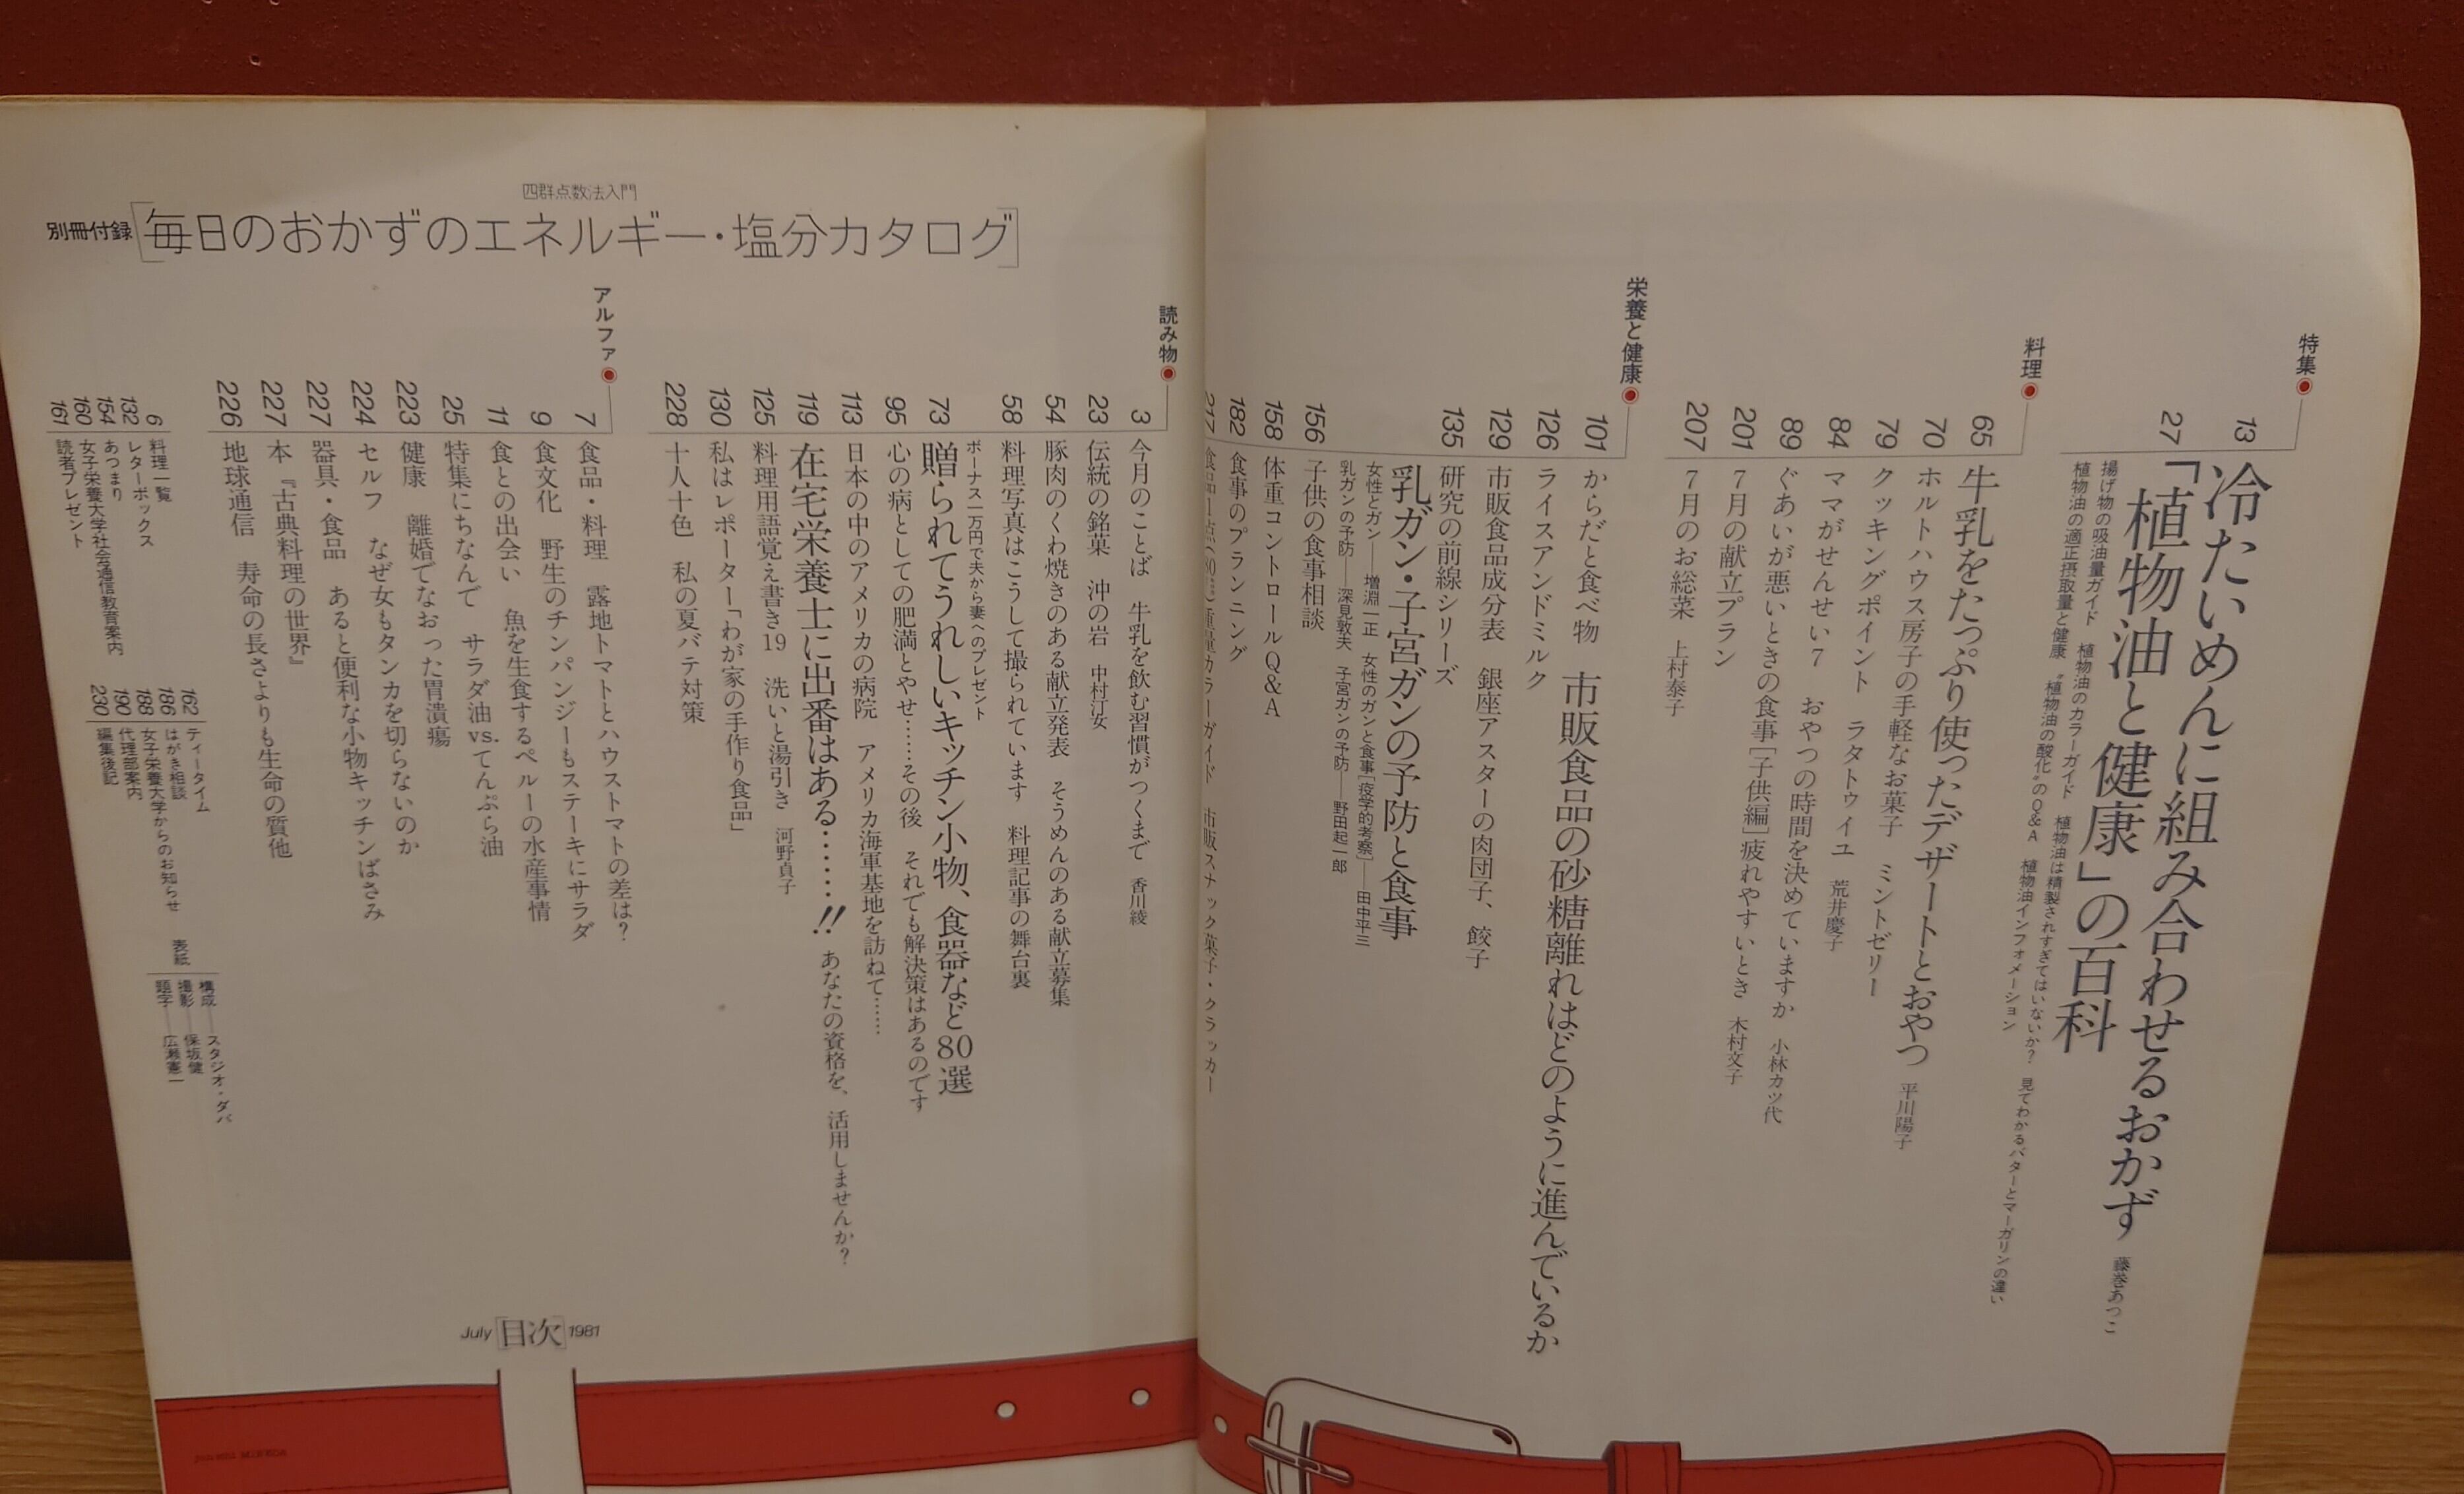 特集
13 冷たいめんに組み合わせるおかず 藤巻あつこ
27 「植物油と健康」の百科
揚げ物の吸油量ガイド 植物油のカラーガイド 植物油は精製されすぎてはいないか？ 見てわかるバターとマーガリンの違い
植物油の適正摂取量と健康 “植物油の酸化”のQ&A 植物油インフォメーション
料理
65 牛乳をたっぷり使ったデザートとおやつ 平川陽子
70 ホルトハウス房子の手軽なお菓子 ミントゼリー
79 クッキングポイント ラタトゥイユ 荒井慶子
84 ママがせんせい7 おやつの時間を決めていますか 小林カツ代
89 ぐあいが悪いときの食事[子供編]疲れやすいとき 木村文子
201 7月の献立プラン
207 7月のお総菜 上村泰子
栄養と健康
101 からだと食べ物 市販食品の砂糖離れはどのように進んでいるか
126 ライスアンドミルク
129 市販食品成分表 銀座アスターの肉団子、餃子
135 研究の前線シリーズ
乳ガン・子宮ガンの予防と食事
女性とガン——増淵一正 女性のガンと食事[疫学的考察]——田中平三
乳ガンの予防——深見敦夫 子宮ガンの予防——野田起一郎
156 子供の食事相談
158 体重コントロールQ&A
182 食事のプランニング
217 食品1点(80)重量カラーガイド 市販スナック菓子・クラッカー
四群点数法入門
別冊付録[毎日のおかずのエネルギー・塩分カタログ]
読み物
3 今月のことば 牛乳を飲む習慣がつくまで 香川綾
23 伝統の銘菓 沖の岩 中村汀女
54 豚肉のくわ焼きのある献立発表 そうめんのある献立募集
58 料理写真はこうして撮られています 料理記事の舞台裏
ボーナス一万円で夫から妻へのプレゼント
73 贈られてうれしいキッチン小物、食器など80選
95 心の病としての肥満とやせ……その後 それでも解決策はあるのです
113 日本の中のアメリカの病院 アメリカ海軍基地を訪ねて……
119 在宅栄養士に出番はある……!! あなたの資格を、活用しませんか？
125 料理用語覚え書き19 洗いと湯引き 河野貞子
130 私はレポーター「わが家の手作り食品」
228 十人十色 私の夏バテ対策
アルファ
7 食品・料理 露地トマトとハウストマトの差は？
9 食文化 野生のチンパンジーもステーキにサラダ
11 食との出会い 魚を生食するペルーの水産事情
25 特集にちなんで サラダ油vs.てんぷら油
223 健康 離婚でなおった胃潰瘍
224 セルフ なぜ女もタンカを切らないのか
227 器具・食品 あると便利な小物キッチンばさみ
227 本『古典料理の世界』
226 地球通信 寿命の長さよりも生命の質他
6 料理一覧
132 レターボックス
154 あつまり
160 女子栄養大学社会通信教育案内
161 読者プレゼント
162 ティータイム
186 はがき相談
188 女子栄養大学からのお知らせ
190 代理部案内
230 編集後記
表紙
構成——スタジオ・ダバ
撮影——保坂健
題字——広瀬憲一
July [目次] 1981